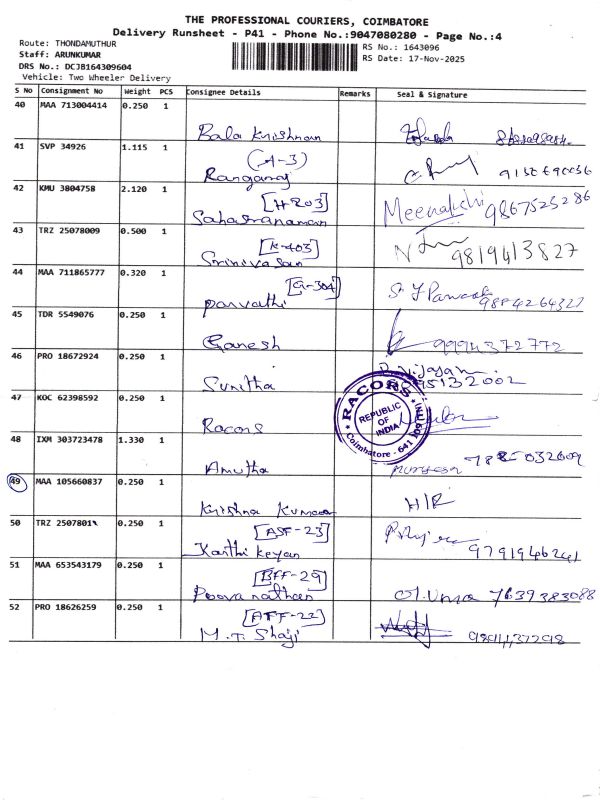 THE PROFESSIONAL COURIERS, COIMBATORE
Delivery Runsheet - P41 - Phone No.:9047080280 - Page No.:4
Route: THONDAMUTHUR
Staff: ARUNKUMAR
DRS No.: DCJB164309604
Vehicle: Two Wheeler Delivery
RS No.: 1643096
RS Date: 17-Nov-2025
S No Consignment No Weight PCS Consignee Details Remarks Seal & Signature
40 MAA 713004414 0.250 1
Bala Krishnan
41 SVP 34926 1.115 1
(A-3)
Rangaraj
42 KMU 3804758 2.120 1
[H-203]
Sahasranaman Meenakshi 9867525286
43 TRZ 25078009 0.500 1
[K-403]
Srinivasan 9819413827
44 MAA 711865777 0.320 1
[G-304]
Parvathi
45 TDR 5549076 0.250 1
Ganesh 9994372772
46 PRO 18672924 0.250 1
Sunitha
47 KOC 62398592 0.250 1
Racors
RACORS
REPUBLIC OF INDIA
Coimbatore - 641
48 IXM 303723478 1.330 1
Amutha
49 MAA 105660837 0.250 1
Krishna Kumar H/R
50 TRZ 2507801 0.250 1
[ASF-23]
Karthikeyan 9791946241
51 MAA 653543179 0.250 1
[BFF-29]
Poovanathan Uma 7639383088
52 PRO 18626259 0.250 1
[AFF-22]
M.T. Shaji